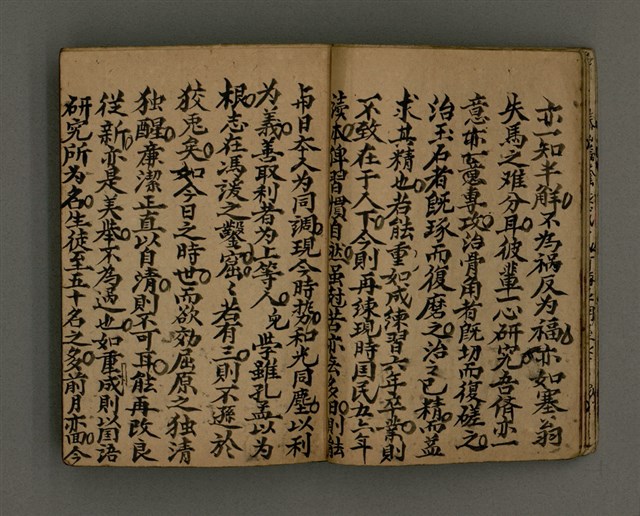 亦一知半解不為禍反為福亦如塞翁
失馬之难分耳彼輩一心研究吾儕亦一
意亦一意專攻治骨角者既切而復磋之
治玉石者既琢而復磨之治之已精而益
求其精也若能重如成練習六年卒業則
不致在于人下今則再練現時国民五六年
讀本俾習慣自然虽对苦亦去多日則能
与日本人为同調現今時势和光同塵以利
为義善取利者为上等人免學雖孔孟以为
根志在馮諼之鑿窟窟若有三則不遜於
狡兎矣如今日之時世而欲効屈原之独清
独醒廉潔正直以自清則不可耳能再改良
從新亦是美举不為過也如重成則以国語
研究所为名生徒至五十名之多前月亦面今